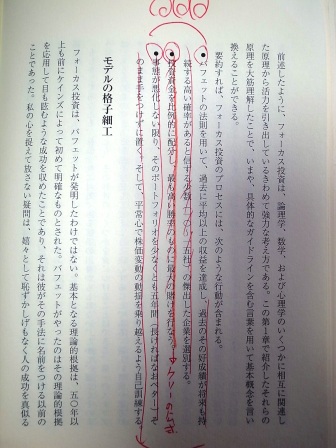 前述したように、フォーカス投資は、論理学、数学、および心理学のいくつかに相互に関連し
た原理から活力を引き出しているきわめて強力な考え方である。この第1章で紹介したそれらの
原理を大筋理解したことで、いまや、具体的なガイドラインを含む言葉を用いて基本概念を言い
換えることができる。
要約すれば、フォーカス投資のプロセスには、次のような行動が含まれる。
●バフェットの法則を用いて、過去に平均以上の収益を達成し、過去のその好成績が将来も持
続する高い確率があると信ずる少数の傑出した企業を選別する。
●投資資金を比例的に配分し、最も高い勝率のものに最大の賭けを行なう。
●事態が悪化しない限り、そのポートフォリオを少なくとも五年間（長ければなおベター）そ
のまま手をつけずに置く。そして、平常心で株価変動の動揺を乗り越えるよう自己訓練する。
モデルの格子細工
フォーカス投資は、バフェットが発明したわけではない。基本となる理論的根拠は、五〇年以
上も前にケインズによって初めて明確なものとされた。バフェットがやったのはその理論的根拠
を応用して目も眩むような成功を収めたことであり、それは彼がその手法に名前をつける以前の
ことであった。私の心を捉えて放さない疑問は、嬉々として恥ずかしげもなく人の成功を真似る